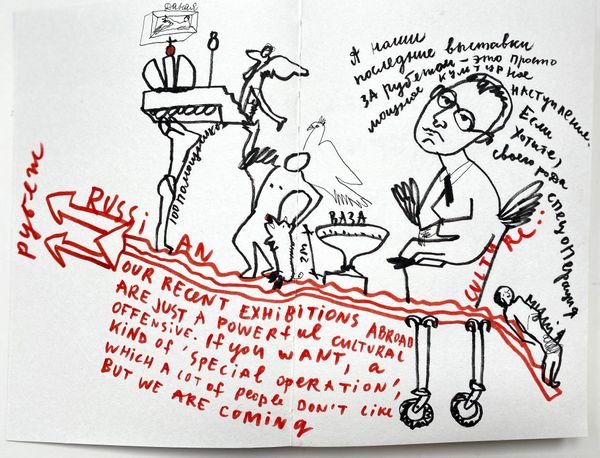 даная
А наши
последние выставки
за рубежом – это просто
мощное культурное
наступление.
Если
хотите,
своего рода
спецоперация
100 помощников
ВАЗА
2 m
рубеж
RUSSIAN
CULTURE:
OUR RECENT EXHIBITIONS ABROAD
ARE JUST A POWERFUL CULTURAL
OFFENSIVE. If you WANT, a
KIND of 'SPECIAL OPERATION',
WHICH A LOT of pEOPLE DON'T LIKE
BUT WE ARE COMING